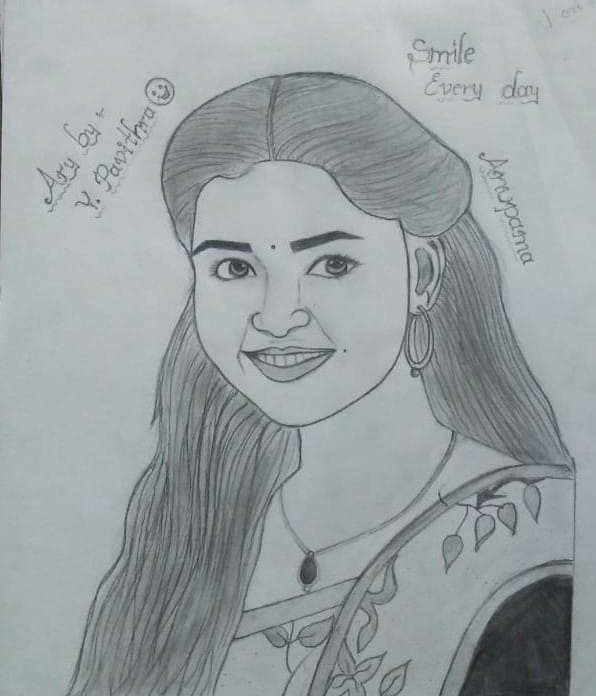 Smile
Every day
Art by :-
Y. Pavithra
Anupama